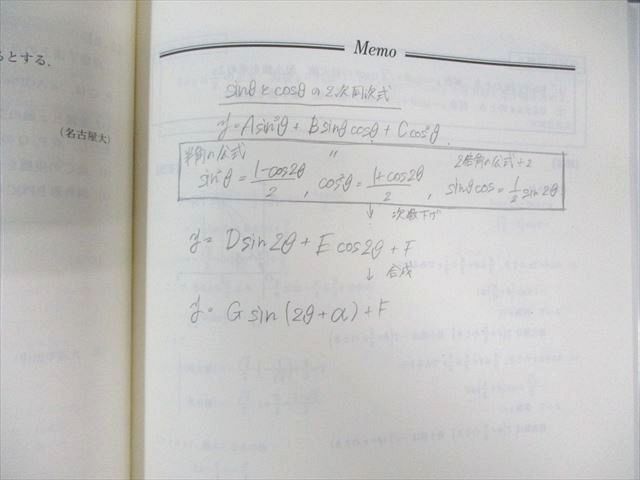 るとする.
(名古屋大)
Memo
sinθとcosθの2次同次式
y=Asin²θ + Bsinθcosθ + Ccos²θ.
半角の公式 〃 2倍角の公式÷2
sin²θ = 1-cos2θ/2 , cos²θ = 1+cos2θ/2 , sinθcos = 1/2 sin2θ
↓ 次数下げ
y= Dsin2θ + Ecos2θ + F
↓ 合成
y= Gsin(2θ+α)+F